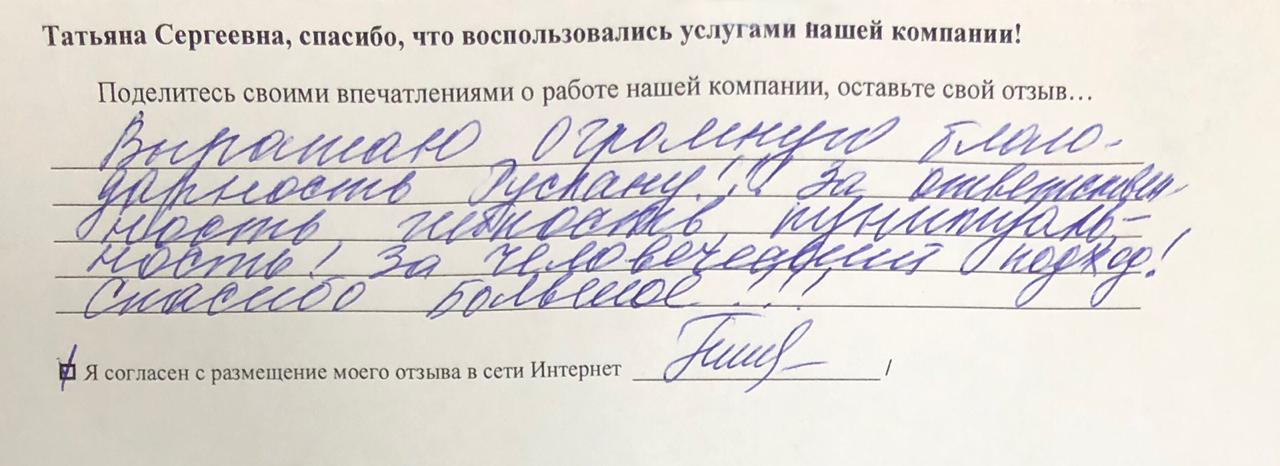 Татьяна Сергеевна, спасибо, что воспользовались услугами нашей компании!
Поделитесь своими впечатлениями о работе нашей компании, оставьте свой отзыв…
Выражаю огромную благо-
дарность Руслану!!! За ответствен-
ность, четкость, пунктуаль-
ность! За человеческий подход!
Спасибо большое!!!
Я согласен с размещение моего отзыва в сети Интернет /